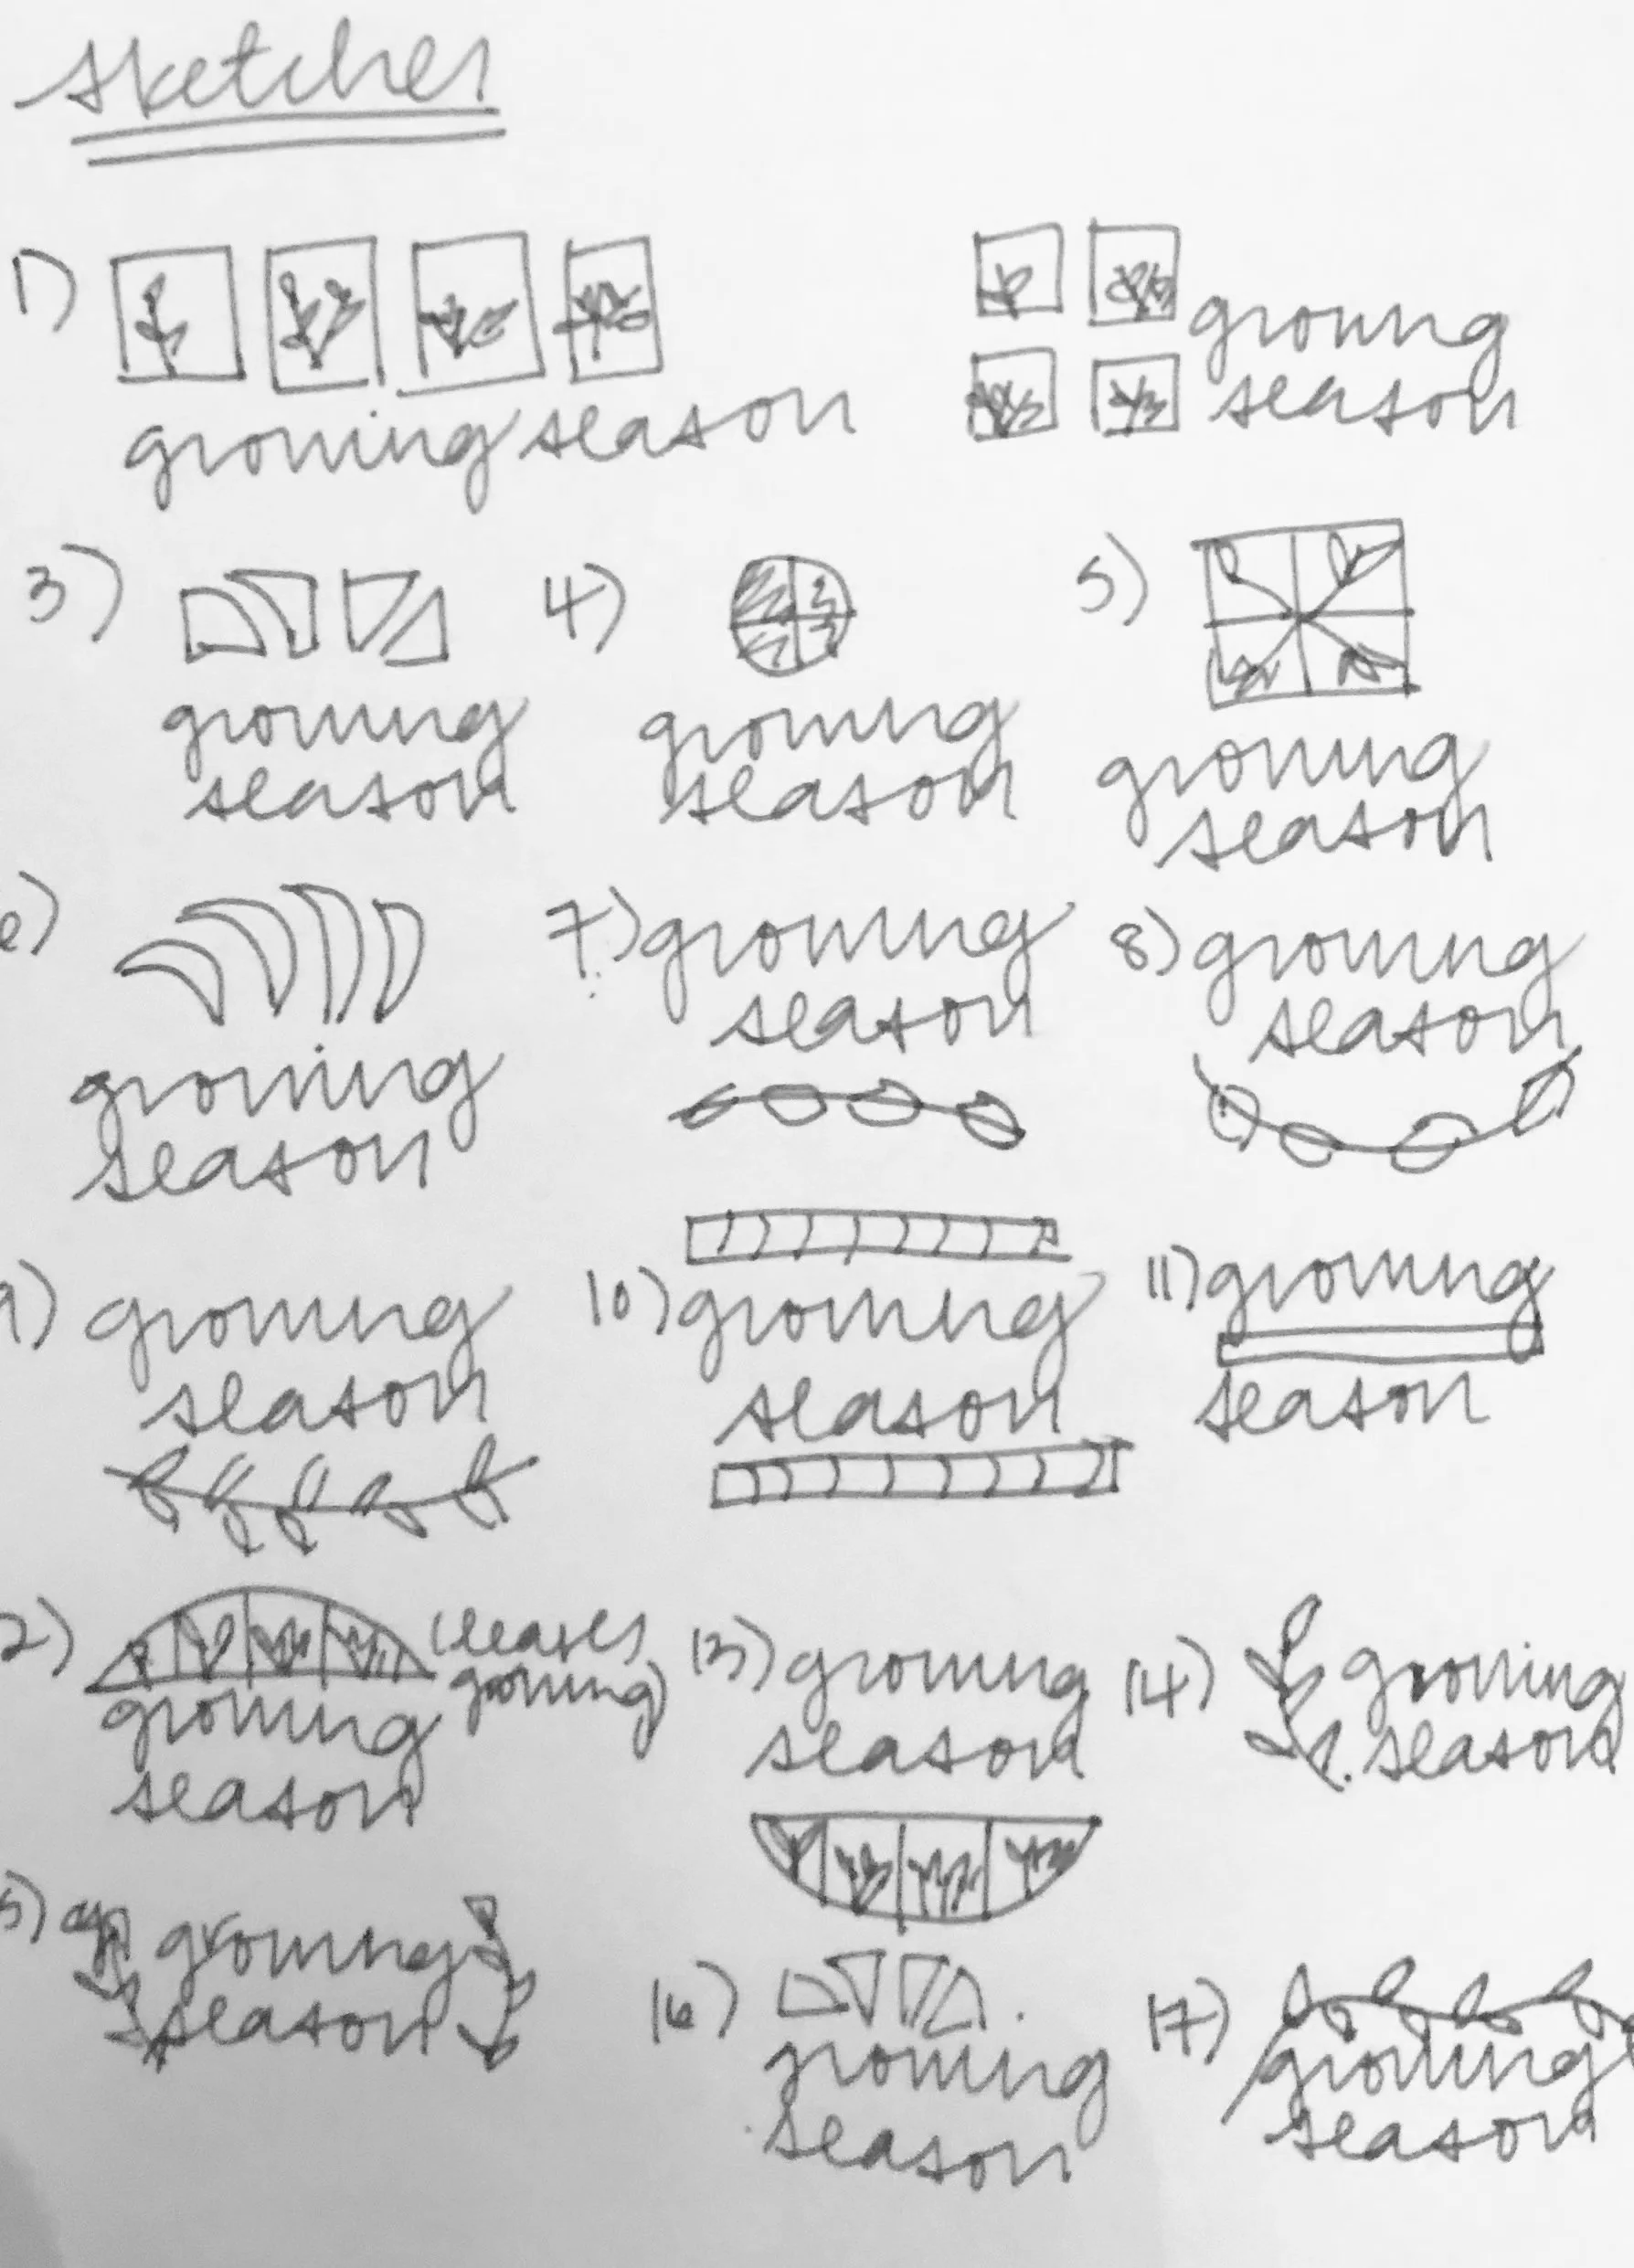 sketches
1)
growing season
growing
season
3)
growing
season
4)
growing
season
5)
growing
season
growing
season
7) growing
season
8) growing
season
9) growing
season
10) growing
season
11) growing
season
2)
(leaves
growing)
growing
season
13) growing
season
14) growing
season
5) growing
season
16)
growing
season
17)
growing
season